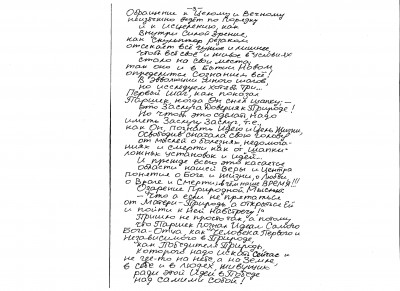 -3-
Обращение к Целому и Вечному
неизбежно ведёт по Порядку
и к исцелению, как
Внутри Силой Зрение,
как Скульптор резцом
отсекает всё чужое и лишнее,
чтобы всё своё и живое в условиях
стало на свои места,
так оно и в Бытии Новом
определится Сознанием всё!
В Эволюции много шагов,
но исследуем хотя б три...
Первый шаг, как показал
Паршек, когда Он снял шапку –
Это Заслуга Доверия к Природе!
Но чтоб это сделать, надо
иметь Заслугу Заслуг, т.е.,
как Он, Познать Идею и Цель Жизни,
Освободив сначала свою голову
от мыслей о болезнях, недомога-
ниях и смерти как от шапки –
ложных установок и идей...
И прежде всего это касается
области нашей Веры и Центра
понятие о Боге и Жизни, о Любви
о Враге и Смерти в течение ВРЕМЯ!!!
Озарение Природной Мыслью
– "Что а если не прятаться
от Матери-Природы, а открыться Ей
и пойти к Ней навстречу!"
Пришло не просто так, а потому,
что Паршек Познал Идеал Самого
Бога-Отца, как "Человека Первого и
Независимого в Природе,
как Победителя Природы,
которого надо искать Сейчас и
не где-то на небе, а на Земле,
в себе и в людях, живущих
ради этой Идеи в Победе
над самими собой!